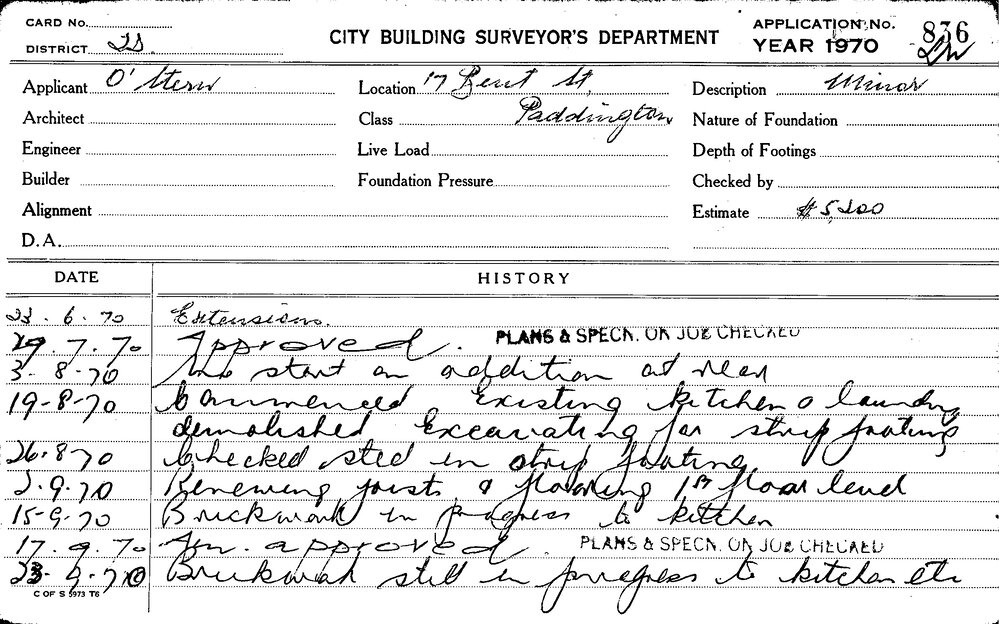 CARD No.
DISTRICT
CITY BUILDING SURVEYOR'S DEPARTMENT
APPLICATION No. 836
YEAR 1970
Applicant O'Stern Location 17 Bent St, Description Minor
Architect Class Paddington Nature of Foundation
Engineer Live Load Depth of Footings
Builder Foundation Pressure Checked by
Alignment Estimate $5200
D.A.
DATE HISTORY
23.6.70 Extensions.
29.7.70 Approved. PLANS & SPECN. ON JOB CHECKED
3-8-70 No start on addition at rear
19-8-70 Commenced Existing kitchen & laundry
demolished Excavating for strip footings
26.8.70 Checked steel in strip footing
2.9.70 Renewing joists & flooring 1st floor level
15-9-70 Brickwork in progress to kitchen
17.9.70 Am. approved. PLANS & SPECN. ON JOB CHECKED
23-9-70 Brickwork still in progress to kitchen etc
C OF S 5973 T6